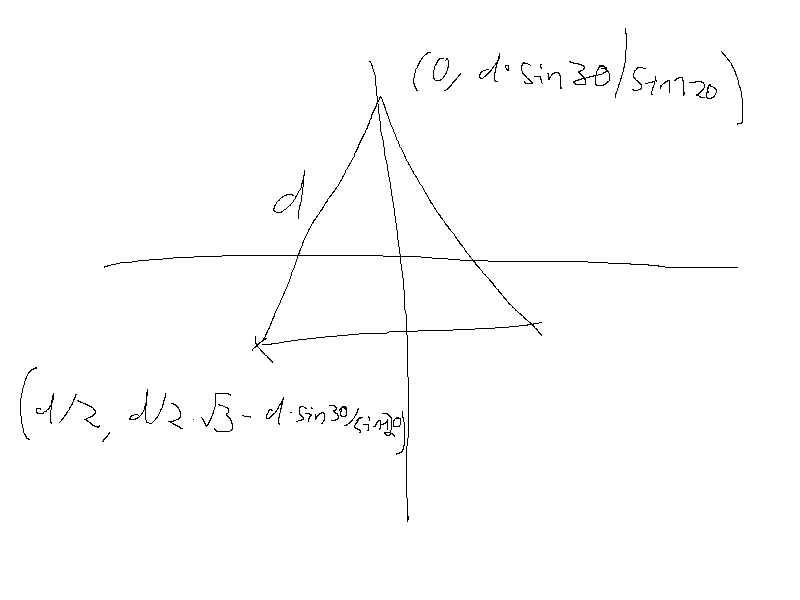 (0, d·sin30/sin120)
d
(d/2, d/2·√3 - d·sin30/sin120)